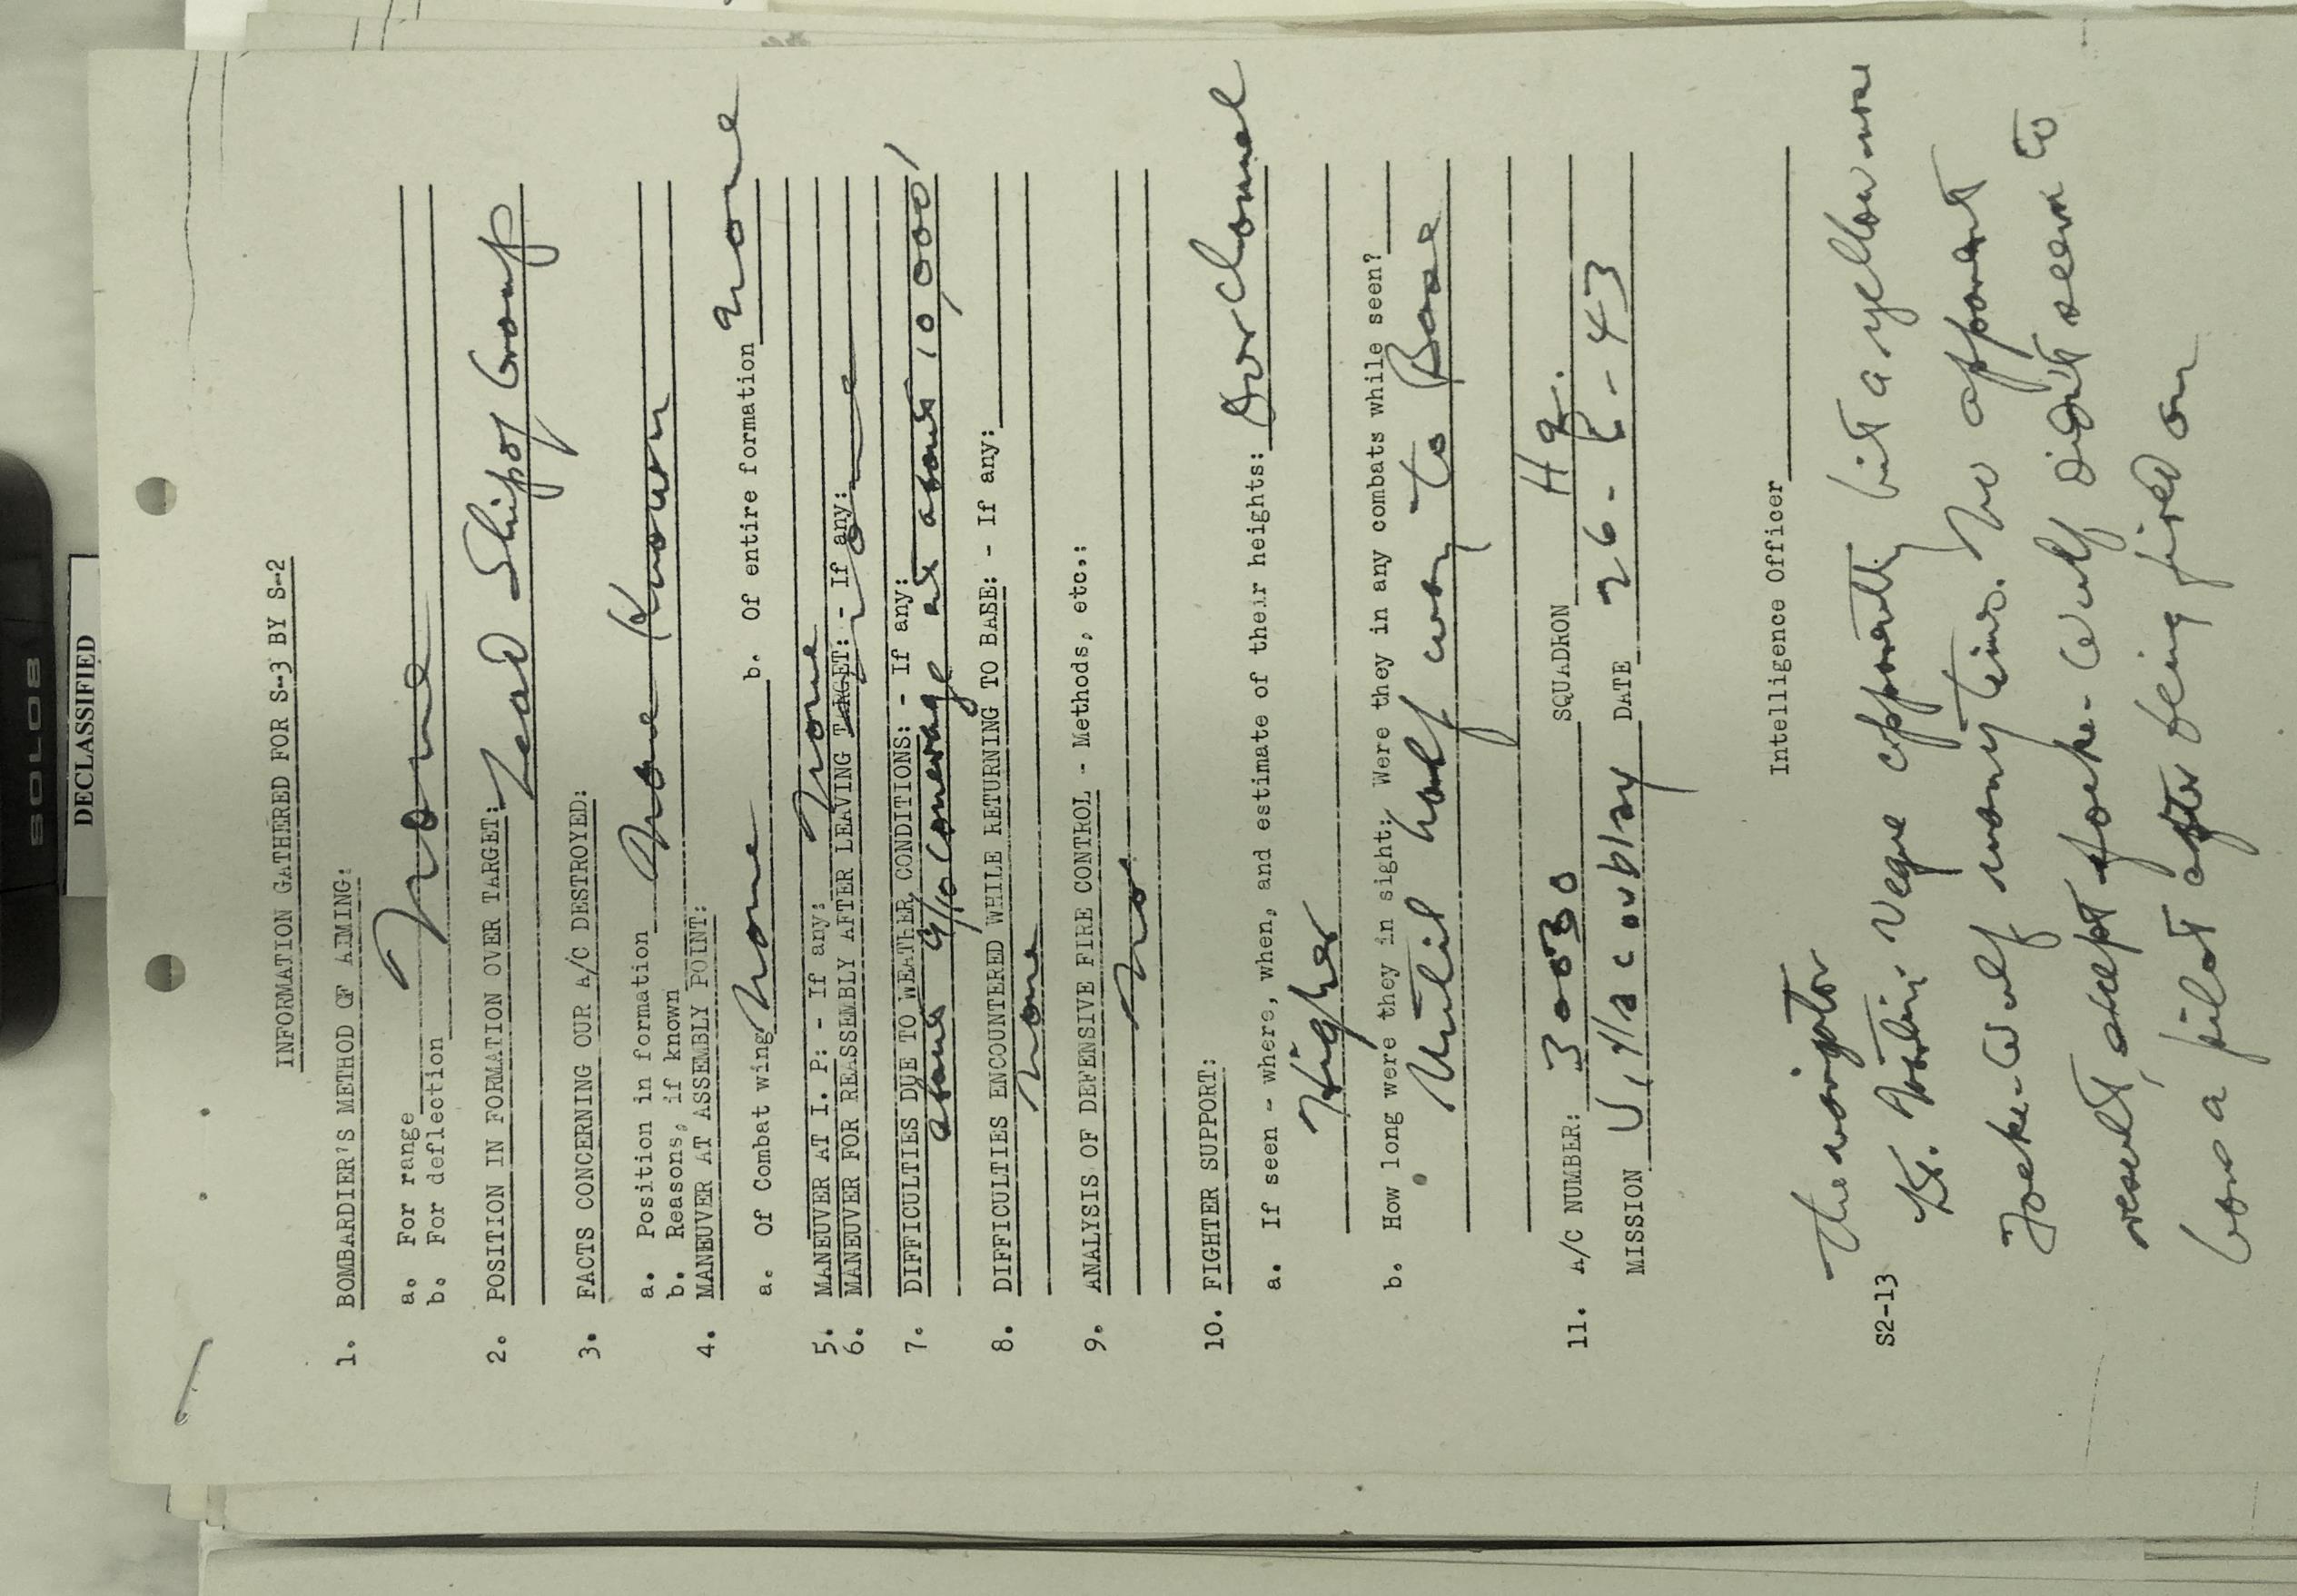 SOLO8
DECLASSIFIED
INFORMATION GATHERED FOR S-3 BY S-2
1. BOMBARDIER'S METHOD OF AIMING:
a. For range
b. For deflection None
2. POSITION IN FORMATION OVER TARGET: Lead Ship of Group
3. FACTS CONCERNING OUR A/C DESTROYED:
a. Position in formation None Known
b. Reasons, if known
4. MANEUVER AT ASSEMBLY POINT:
a. Of Combat wing None b. Of entire formation None
5. MANEUVER AT I. P: - If any: None
6. MANEUVER FOR REASSEMBLY AFTER LEAVING TARGET: - If any: None
7. DIFFICULTIES DUE TO WEATHER CONDITIONS: - If any:
about 9/10 Coverage at about 10,000'
8. DIFFICULTIES ENCOUNTERED WHILE RETURNING TO BASE: - If any:
None
9. ANALYSIS OF DEFENSIVE FIRE CONTROL - Methods, etc.:
No
10. FIGHTER SUPPORT:
a. If seen - where, when, and estimate of their heights: Over Channel
Higher
b. How long were they in sight: Were they in any combats while seen?
Until half way to Base
11. A/C NUMBER: 30030 SQUADRON Hq.
MISSION Villacoublay DATE 26-6-43
Intelligence Officer
The navigator
S2-13
Lt. apparently hit a yellow nose
Focke-Wulf many times. No apparent
result, except Focke-Wulf didn't seem to
have a pilot after being fired on